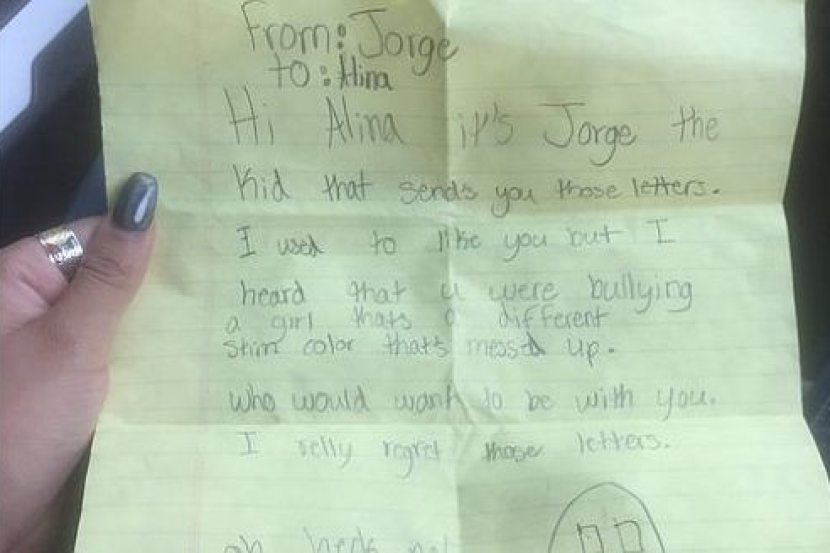 From: Jorge
to: Alina
Hi Alina it's Jorge the
kid that sends you those letters.
I used to like you but I
heard that u were bullying
a girl thats a different
skin color that's messed up.
who would want to be with you.
I relly regret those letters.
oh